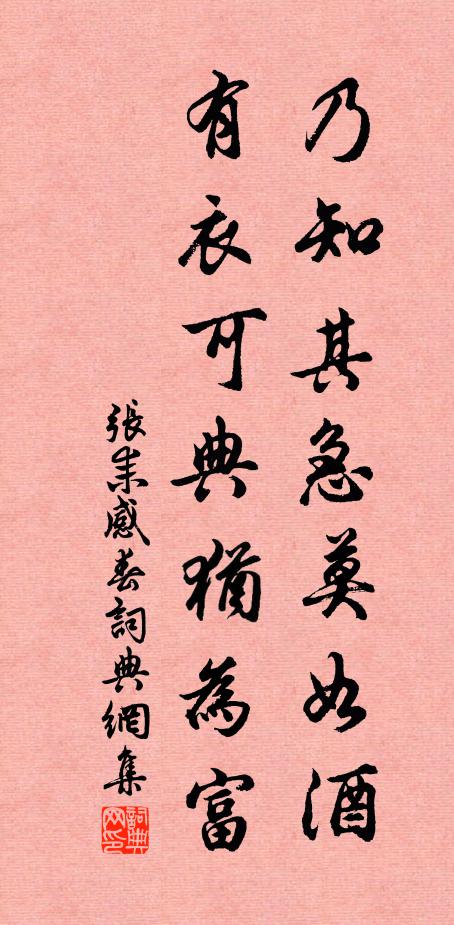 乃知其急莫如酒
有衣可典猶為富
張耒感春詞典網集
詞典网印